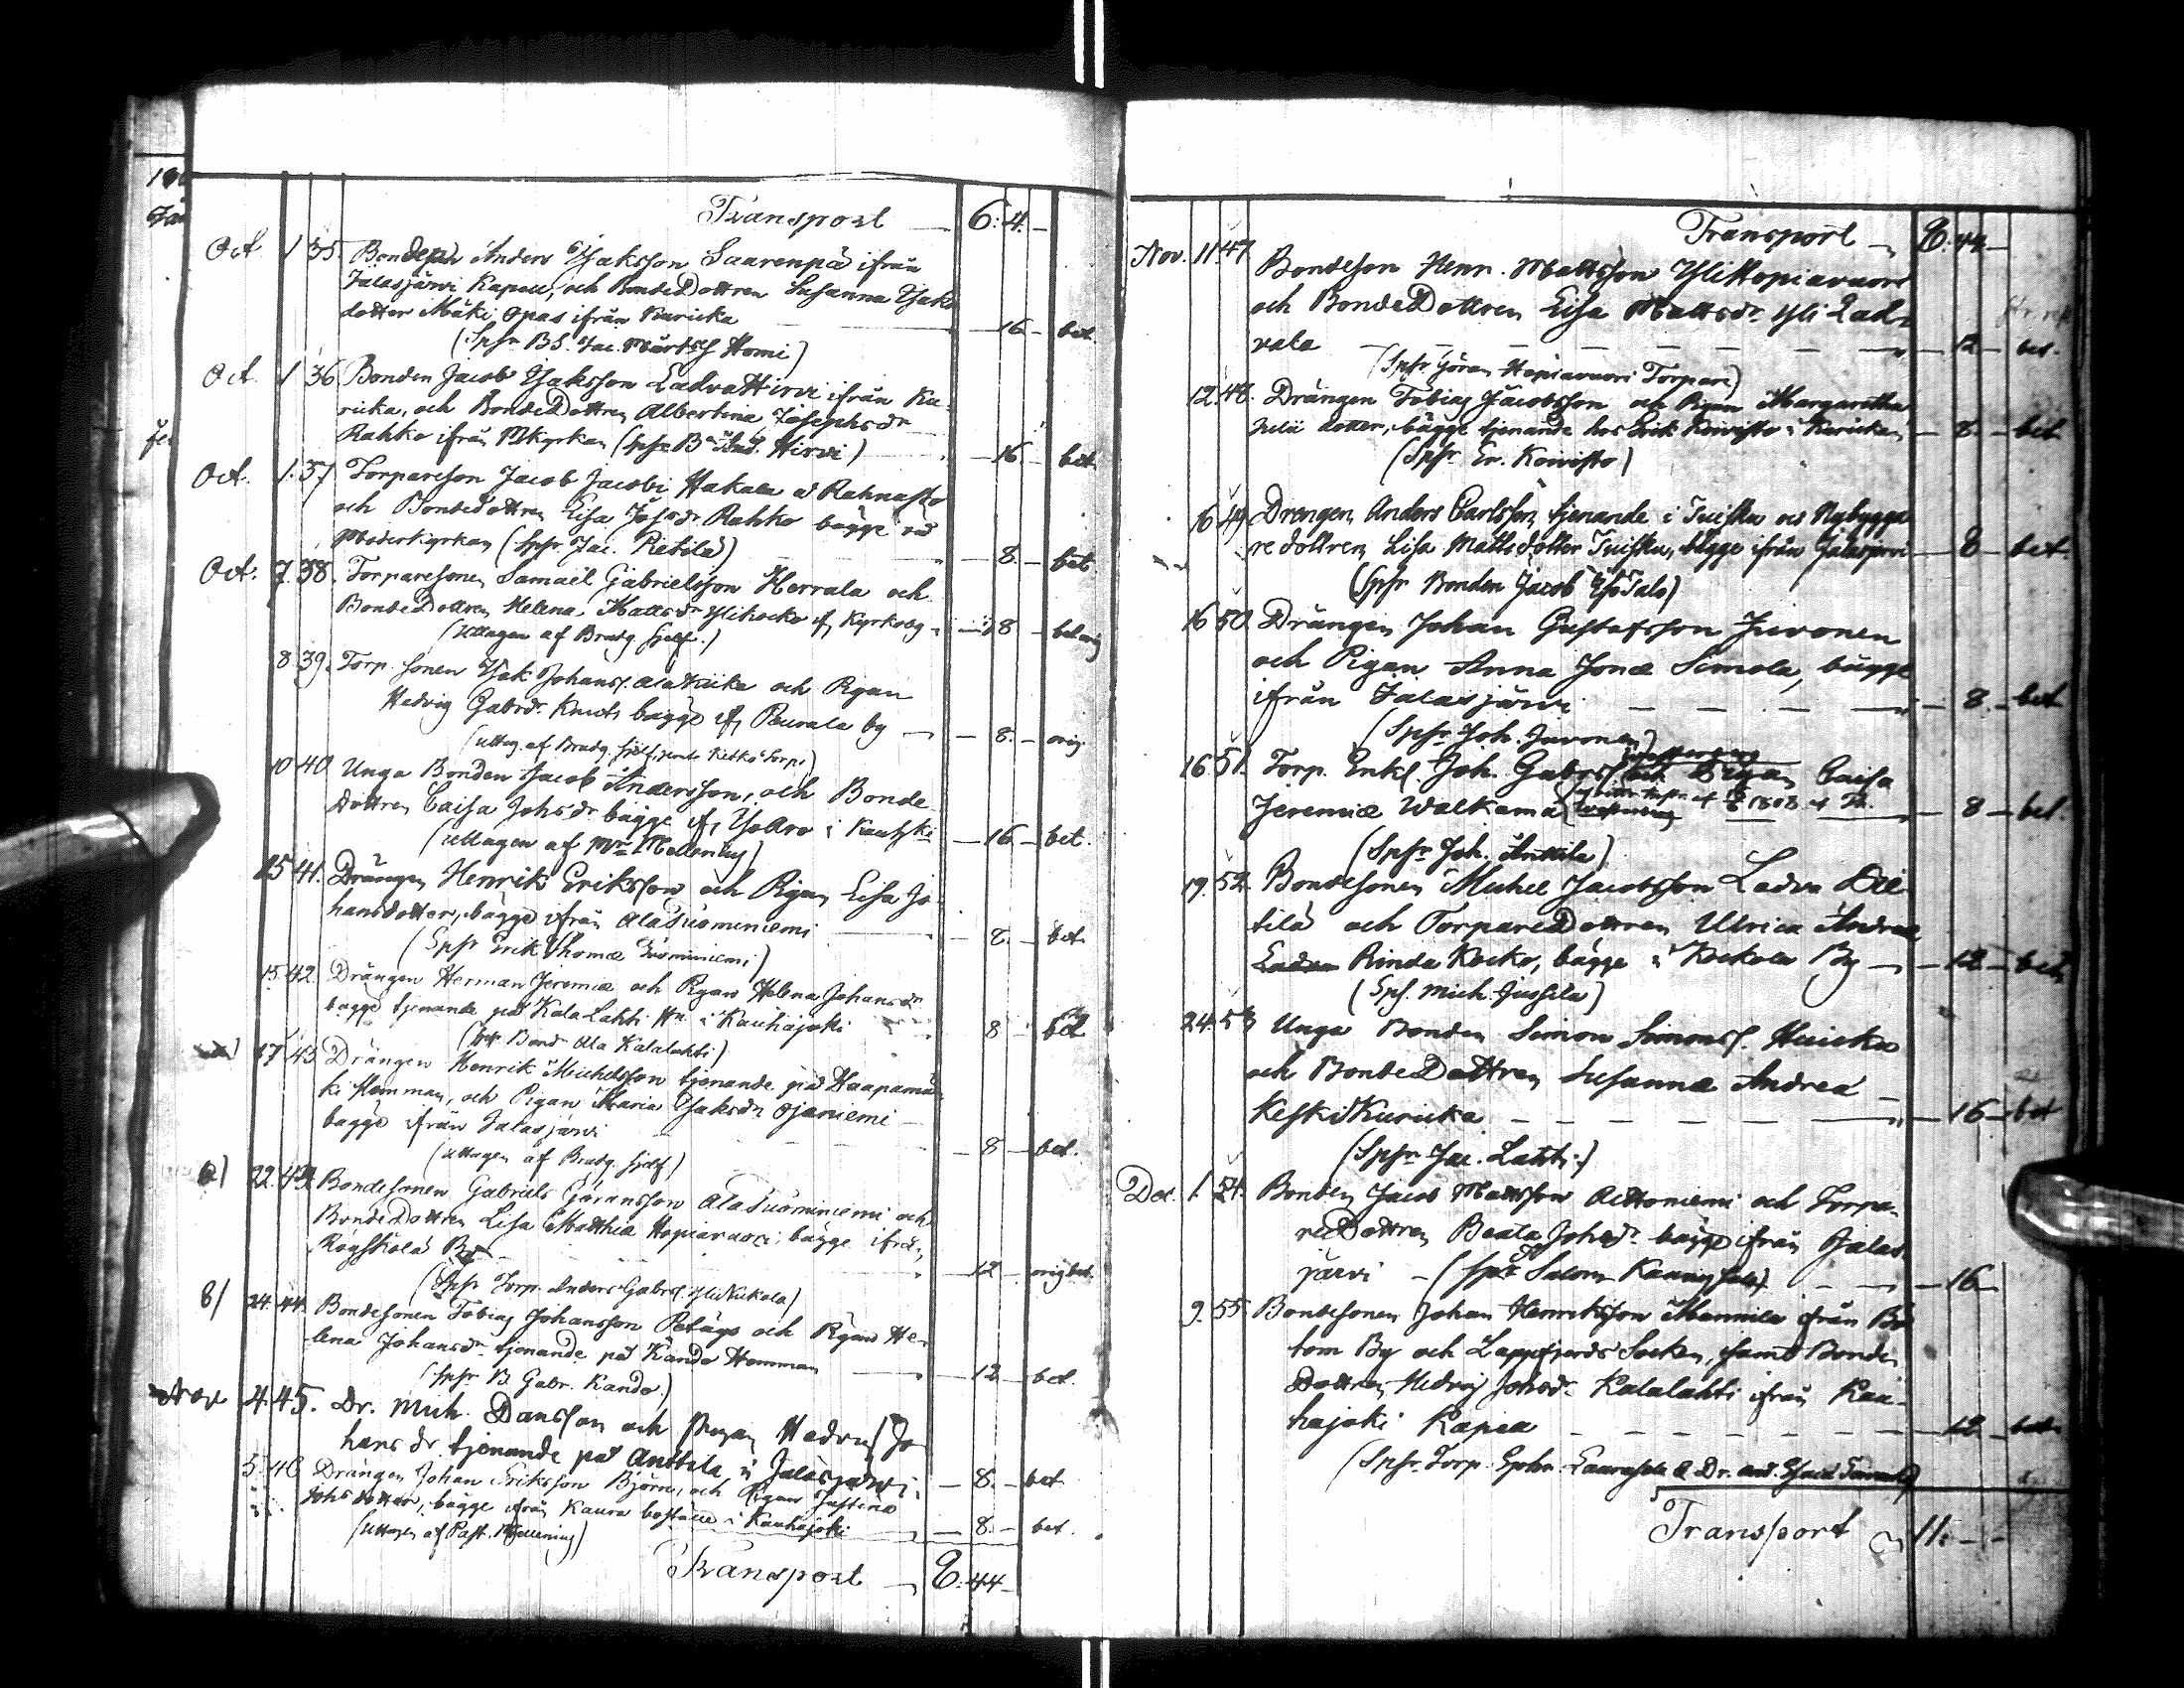 Transport — 6: 4. —
Oct. 1 35. Bonden Anders Isaksson Saarenpä ifrån
Jalasjärvi Kapell, och BondeDottren Susanna Isaks
dotter Mäki Opas ifrån Kuricka — 16 — bet.
(Spfr BS. Jac. Homi)
Oct. 1 36 Bonden Jacob Isaksson LadvaHirvi ifrån Ku-
ricka, och BondeDottren Albertina Josephsdr
Rahko ifrån Mkyrkan (Spfr Bn And. Hirvi) — 16 — bet.
Oct. 1. 37 Torpareson Jacob Jacobi Hakala Rahnasto
och Bondedottren Lisa Rahko bägge vid
Moderkyrkan (Spfr. Jac. Pietilä) — 8. — bet.
Oct. 7. 38. Torparesonen Samuel Gabrielsson Herrala och
BondeDottren Helena Mattsdr Ylikocko if. Kyrkoby — 8 —
(Uttagen af Brudg. sjelf.)
8. 39. Torp. sonen Isak Johanss. och Pigan
Hedvig Gabrdr. bägge if. Peurala by — 8. — orig.
(uttag. af Brudg. sjelf)
10 40. Unga Bonden Jacob Andersson, och Bonde
dottren Caisa Johsdr bägge if. i — 16 — bet.
(uttagen af)
15 41. Drängen Henrik Eriksson och Pigan Lisa Jo-
hansdotter, bägge ifrån AlaSuominiemi — 8. — bet.
(Spfr Erik Thomæ Suominiemi)
15. 42. Drängen Herman Jeremiæ och Pigan Helena Johansdr
bägge tjenande på KalaLahti Hn i Kauhajoki — 8 — bet.
(Bond. Ala Kalalahti)
17 43. Drängen Henrik Michelsson tjenande på Haapamä-
ki Hemman, och Pigan Maria Isaksdr Ojaniemi —
bägge ifrån Jalasjärvi — 8 — bet.
(uttagen af Brudg. sjelf)
a) 22. 43. Bondesonen Gabriel Göransson AlaSuominiemi och
BondeDottren Lisa Matthiæ Hopiavuori, bägge ifrån
Röyskölä By — 12 —
(Spfr Torp. Anders Gabrs.)
8/ 24. 44. Bondesonen Tobias Johansson och Pigan He-
lena Johansdr tjenande på Kando Hemman — 12 — bet.
(Spfr B. Gabr. Kando.)
Nov 4. 45. Dr. Mich. Dansson och Pigan Hedvig Jo-
hans dr. tjenande på Anttila i Jalasjärvi — 8. — bet.
5. 46 Drängen Johan Eriksson Björn, och Pigan Justina
Johsdotter, bägge ifrån Kaura boställe i Kauhajoki — 8. — bet.
(Uttagen af Past.)
Transport — 8: 44 —
Transport — 8: 44 —
Nov. 11 47 Bondeson Henr. Mattsson YliHopiavuori
och BondeDottren Lisa Mattsdr. Yli Lad-
vala — 12 — bet.
(Spfr. Göran Hopiavuori Torpare)
12. 48. Drängen Tobias Jacobsson och Pigan Margaretha
dotter, bägge tjenande hos Erik Koivisto i Kuricka — 8. — bet.
(Spfr. Er. Koivisto)
16 49 Drengen Anders Carlsson, tjenande i Tuisku och Nybygga-
re dottren Lisa Mattsdotter Tuisku, bägge ifrån Jalasjervi — 8 — bet.
(Spfr Bonden Jacob)
16 50 Drängen Johan Gustafsson Juvonen
och Pigan Anna Jonæ Simola, bägge
ifrån Jalasjärvi — 8. — bet
(Spfr. Joh. Juvonen)
16 51. Torp. Enkl. Joh. Gabrss. och Pigan Caisa
Jeremiæ Walkama — 8 — bet.
(Spfr Joh. Anttila)
19. 52. Bondesonen Michel Jacobsson Ladva
tilä och TorpareDottren Ulrica Andreæ
Rinda Kocko, bägge i Kockola By — 12 — bet.
(Spf. Mich. Jussila)
24. 53 Unga Bonden Simon Simonss.
och BondeDottren Susanna Andreæ —
KeskiKuricka — 16 — bet
(Spfr Jac. Lahti.)
Dec. 1. 54. Bonden Jacob Mattsson och Torpa-
reDottren Beata Johsdr. bägge ifrån Jalas-
järvi — (Spfr Salom.) — 16
9. 55. Bondesonen Johan Henriksson Mannila ifrån Bö-
tom By och Lappfjerds Socken, samt Bonde
Dottren Hedvig Johsdr. Kalalahti ifrån Kau-
hajoki Kapell — 12 — bet.
(Spfr. Torp.)
Transport — 11. —